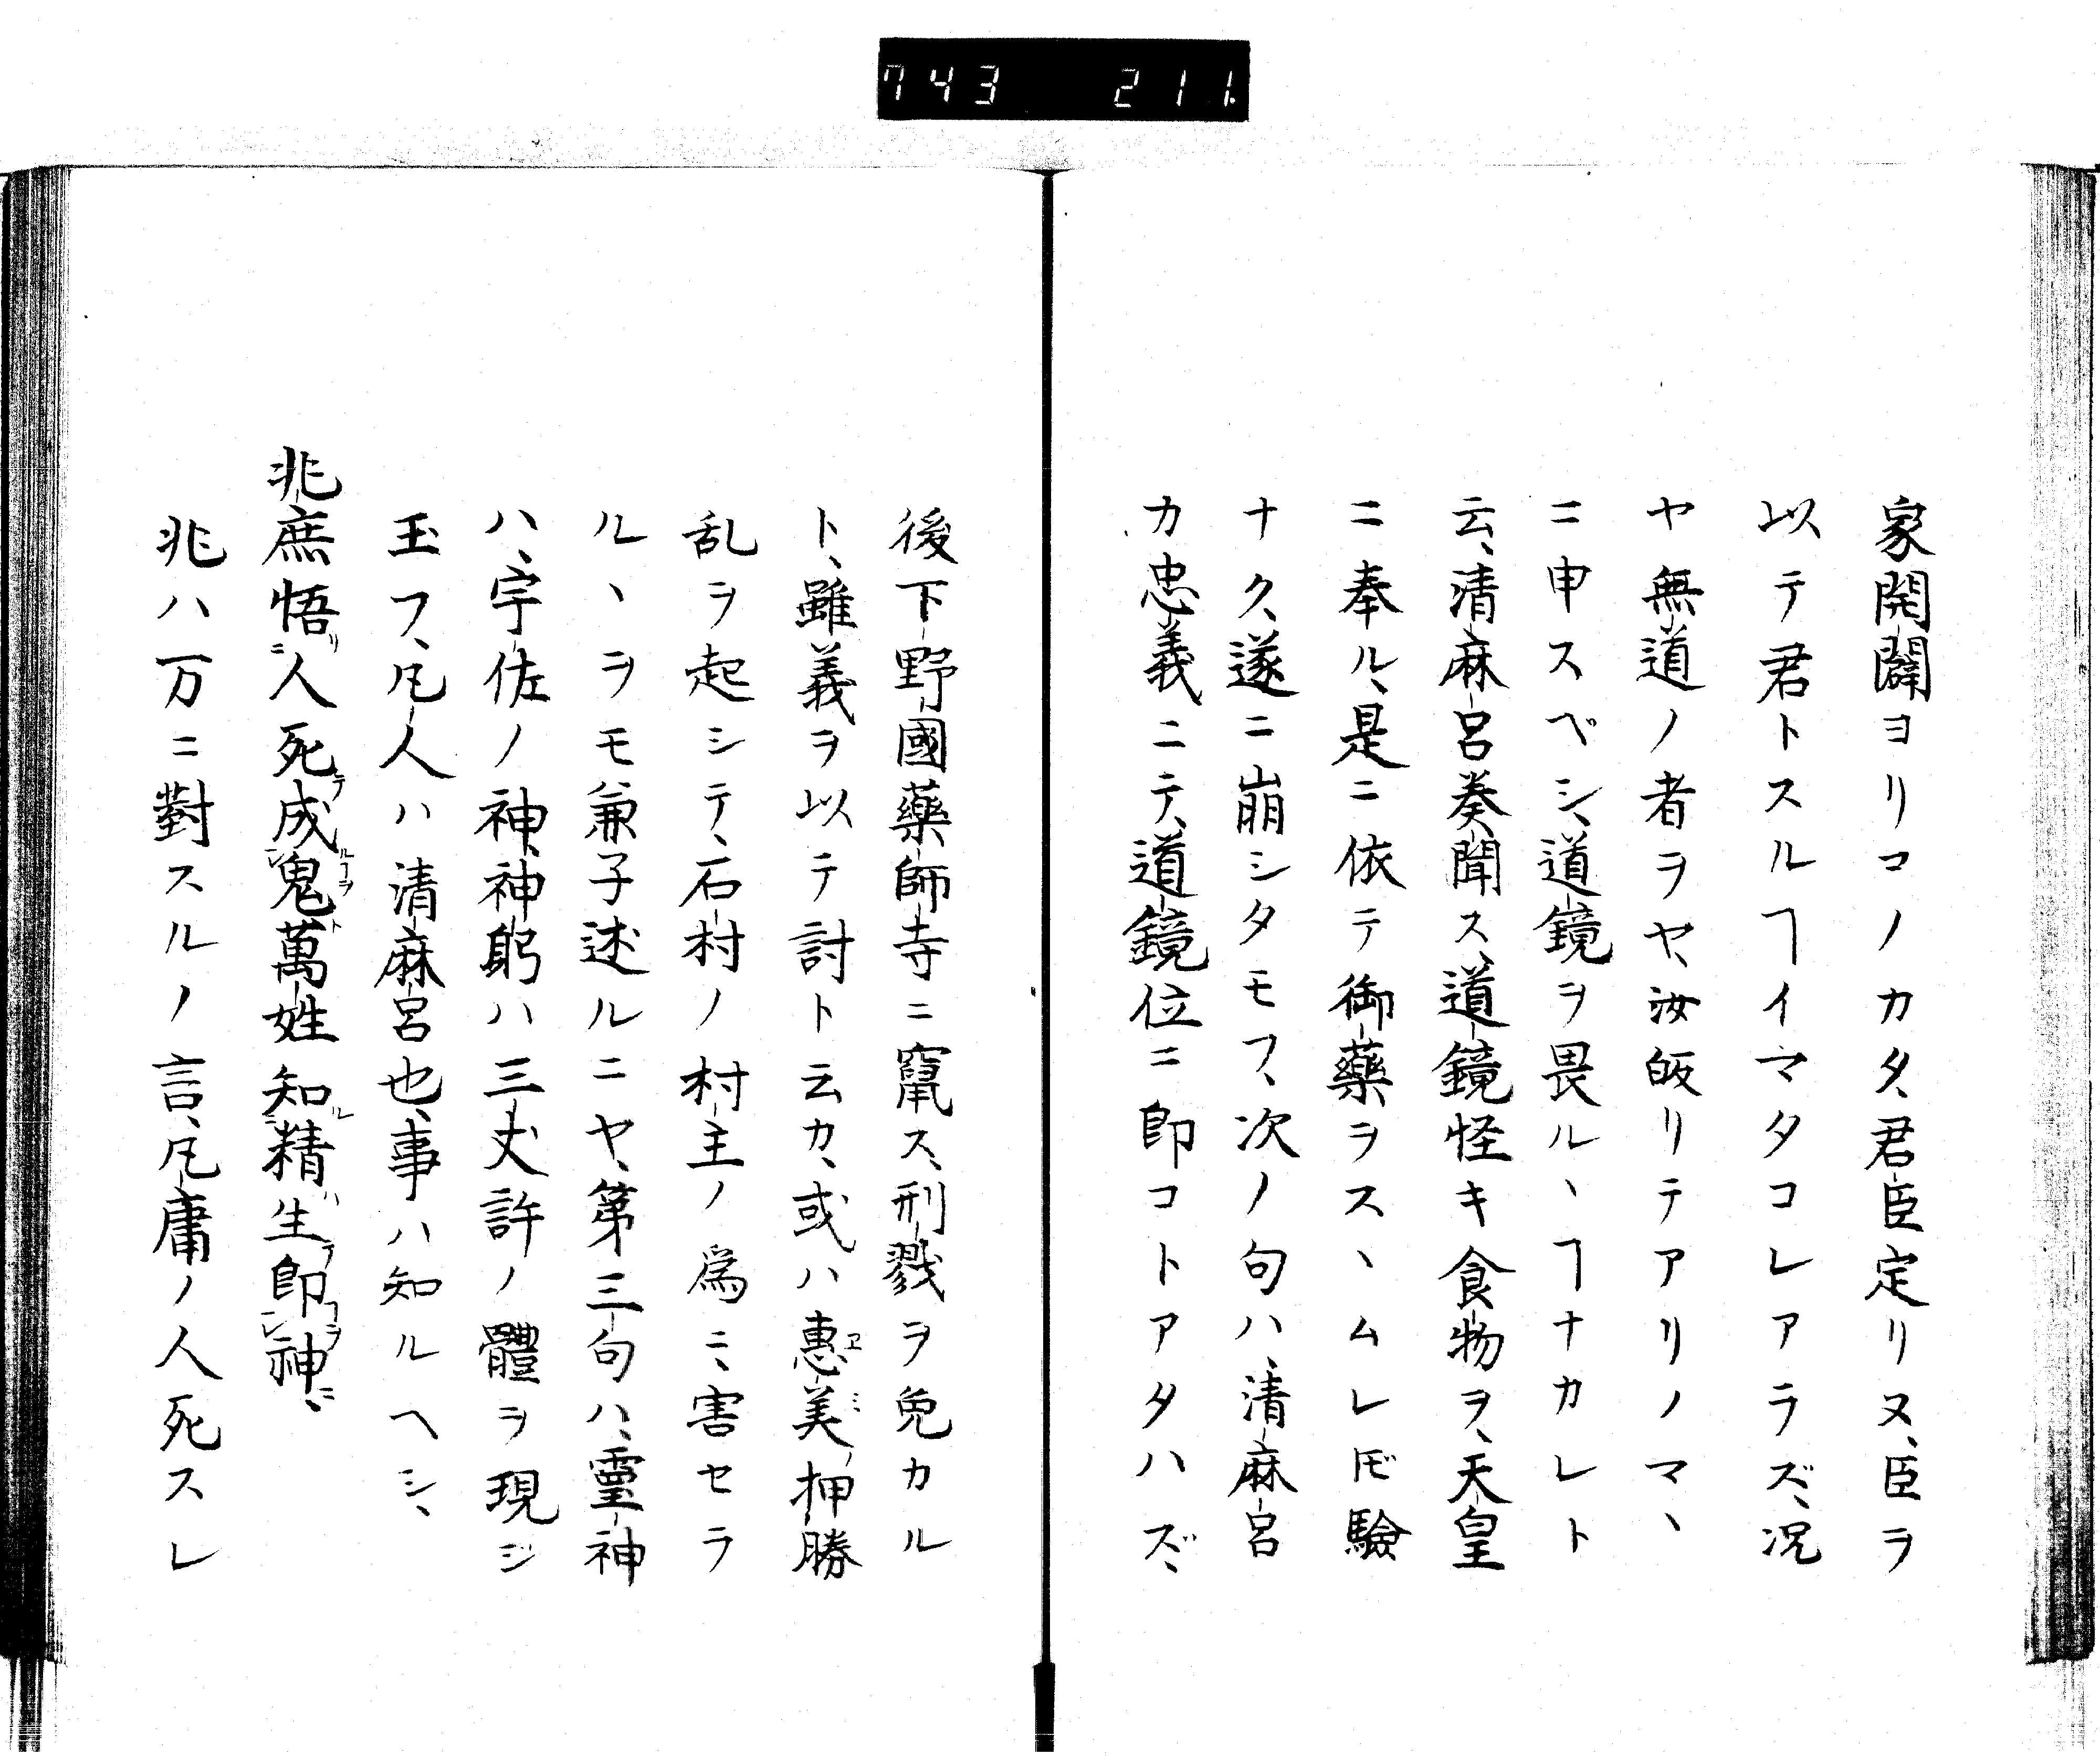 743 211.
家開闢ヨリコノカタ、君臣定リヌ、臣ヲ
以テ君トスルヿイマタコレアラズ、况
ヤ無道ノ者ヲヤ、汝皈リテアリノマヽ
ニ申スペシ、道鏡ヲ畏ルヽヿナカレト
云、清麻呂奏聞ス、道鏡怪キ食物ヲ、天皇
ニ奉ル、是ニ依テ御藥ヲスヽムレ𪜈驗
ナク、遂ニ崩シタモフ、次ノ句ハ、清麻呂
カ忠義ニテ、道鏡位ニ即コトアタハズ、
後下野國藥師寺ニ竄ス、刑戮ヲ免カル
ト、雖義ヲ以テ討ト云カ、或ハ惠美押勝
乱ヲ起シテ、石村ノ村主ノ爲ニ、害セラ
ルヽヲモ兼子述ルニヤ、第三句ハ、靈神
ハ、宇佐ノ神、神躬ハ三丈許ノ體ヲ現ジ
玉フ、凡人ハ清麻呂也、事ハ知ルヘシ、
兆庶悟ニリ人死テ成ルヿヲ鬼ト萬姓知ル精ハ生テ即ヿヲ神ニ、
兆ハ万ニ對スルノ言、凡庸ノ人死スレ